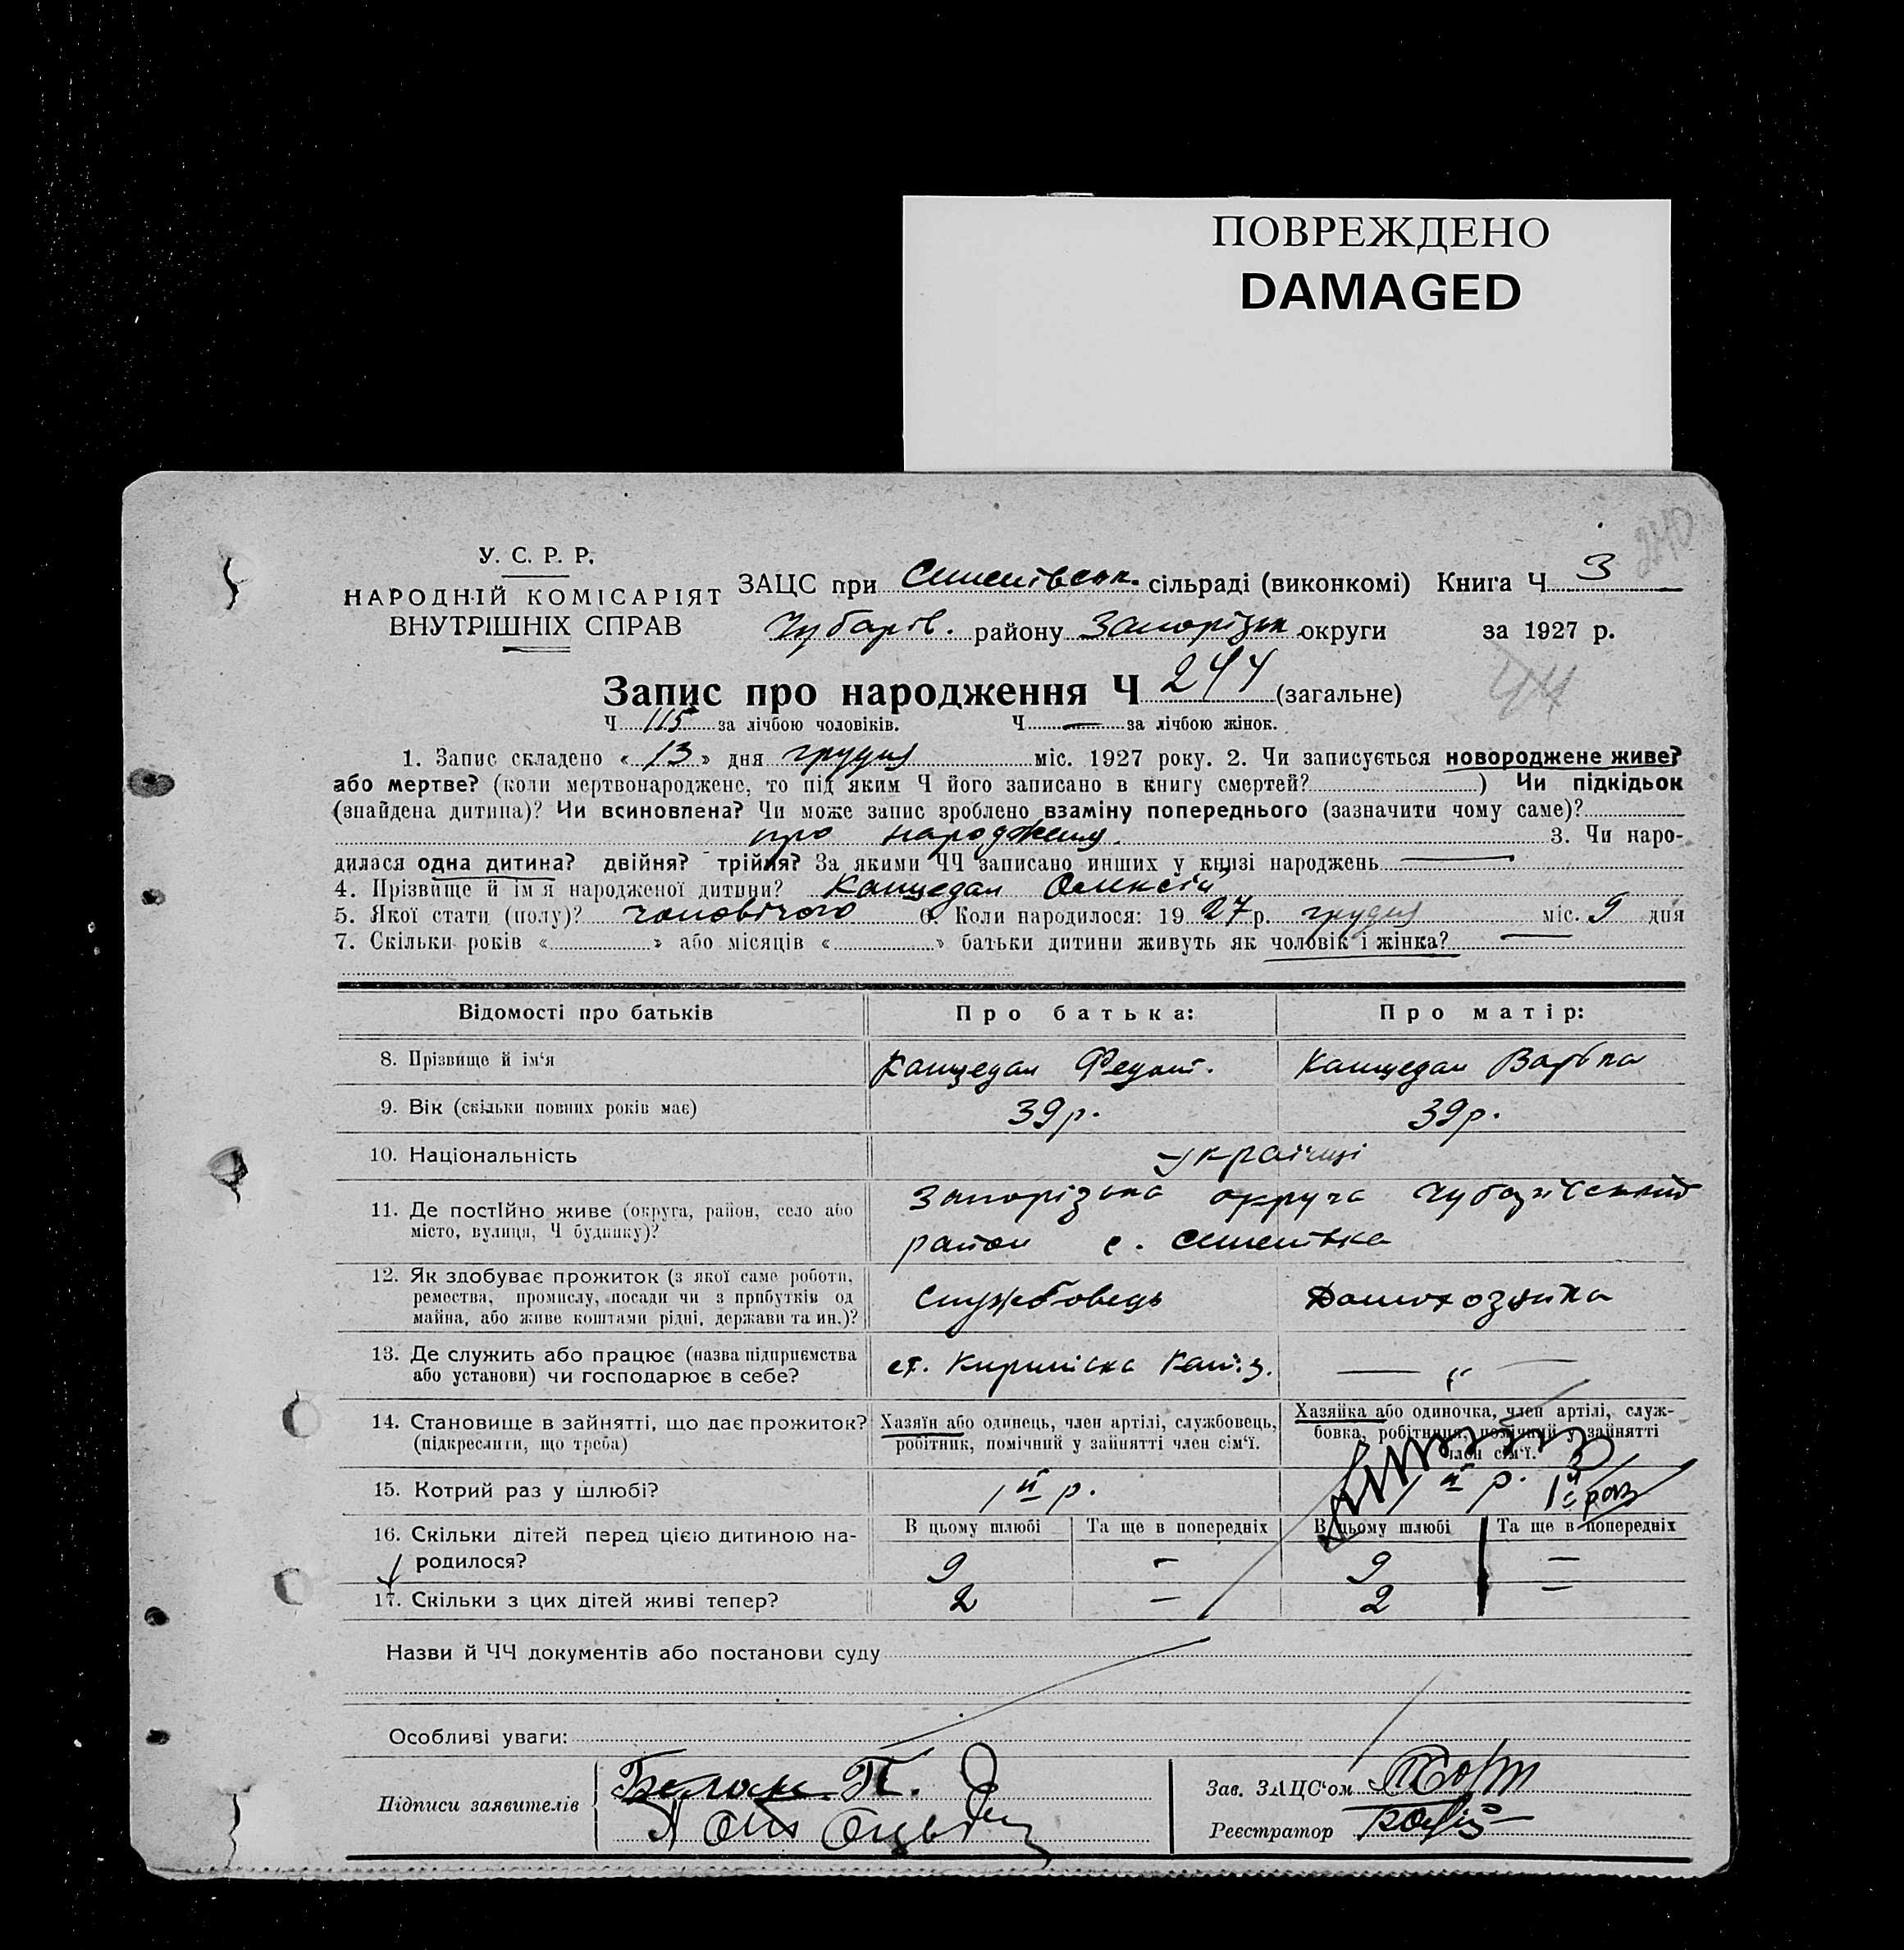 ПОВРЕЖДЕНО
DAMAGED
240
У. С. Р. Р.
НАРОДНІЙ КОМІСАРІЯТ
ВНУТРІШНІХ СПРАВ
ЗАЦС при Семенівськ. сільраді (виконкомі) Книга Ч 3
Чубарів. району Запорізьк округи за 1927 р.
Запис про народження Ч 244 (загальне)
44
Ч 115 за лічбою чоловіків. Ч — за лічбою жінок.
1. Запис складено « 13 » дня грудня міс. 1927 року. 2. Чи записується новороджене живе?
або мертве? (коли мертвонароджене, то під яким Ч його записано в книгу смертей? ) Чи підкідьок
(знайдена дитина)? Чи всиновлена? Чи може запис зроблено взаміну попереднього (зазначити чому саме)?
про народження. 3. Чи наро-
дилася одна дитина? двійня? трійня? За якими ЧЧ записано инших у книзі народжень —
4. Прізвище й ім'я народженої дитини? Канцедал Олексій
5. Якої стати (полу)? чоловічого 6. Коли народилося: 1927 р. грудня міс. 9 дня
7. Скільки років « » або місяців « » батьки дитини живуть як чоловік і жінка? —
Відомості про батьків Про батька: Про матір:
8. Прізвище й ім'я Канцедал Федот. Канцедал Варька
9. Вік (скільки повних років має) 39 р. 39 р.
10. Національність українці
11. Де постійно живе (округа, район, село або Запорізька округа Чубарівський
місто, вулиця, Ч будинку)? район с. Семенівка
12. Як здобуває прожиток (з якої саме роботи,
ремества, промислу, посади чи з прибутків од Службовець Домохозяйка
майна, або живе коштами рідні, держави та ин.)?
13. Де служить або працює (назва підприємства ст. —〃—
або установи) чи господарює в себе?
14. Становище в зайнятті, що дає прожиток? Хазяїн або одинець, член артілі, службовець, Хазяйка або одиночка, член артілі, служ-
(підкреслити, що треба) робітник, помічний у зайнятті член сім'ї. бовка, робітниця, помічний у зайнятті
член сім'ї.
15. Котрий раз у шлюбі? 1й р. 1й р. 1й раз
16. Скільки дітей перед цією дитиною на- В цьому шлюбі Та ще в попередніх В цьому шлюбі Та ще в попередніх
родилося? 9 — 9 —
17. Скільки з цих дітей живі тепер? 2 — 2 —
Назви й ЧЧ документів або постанови суду
Особливі уваги:
Підписи заявителів
Зав. ЗАЦС'ом
Реєстратор